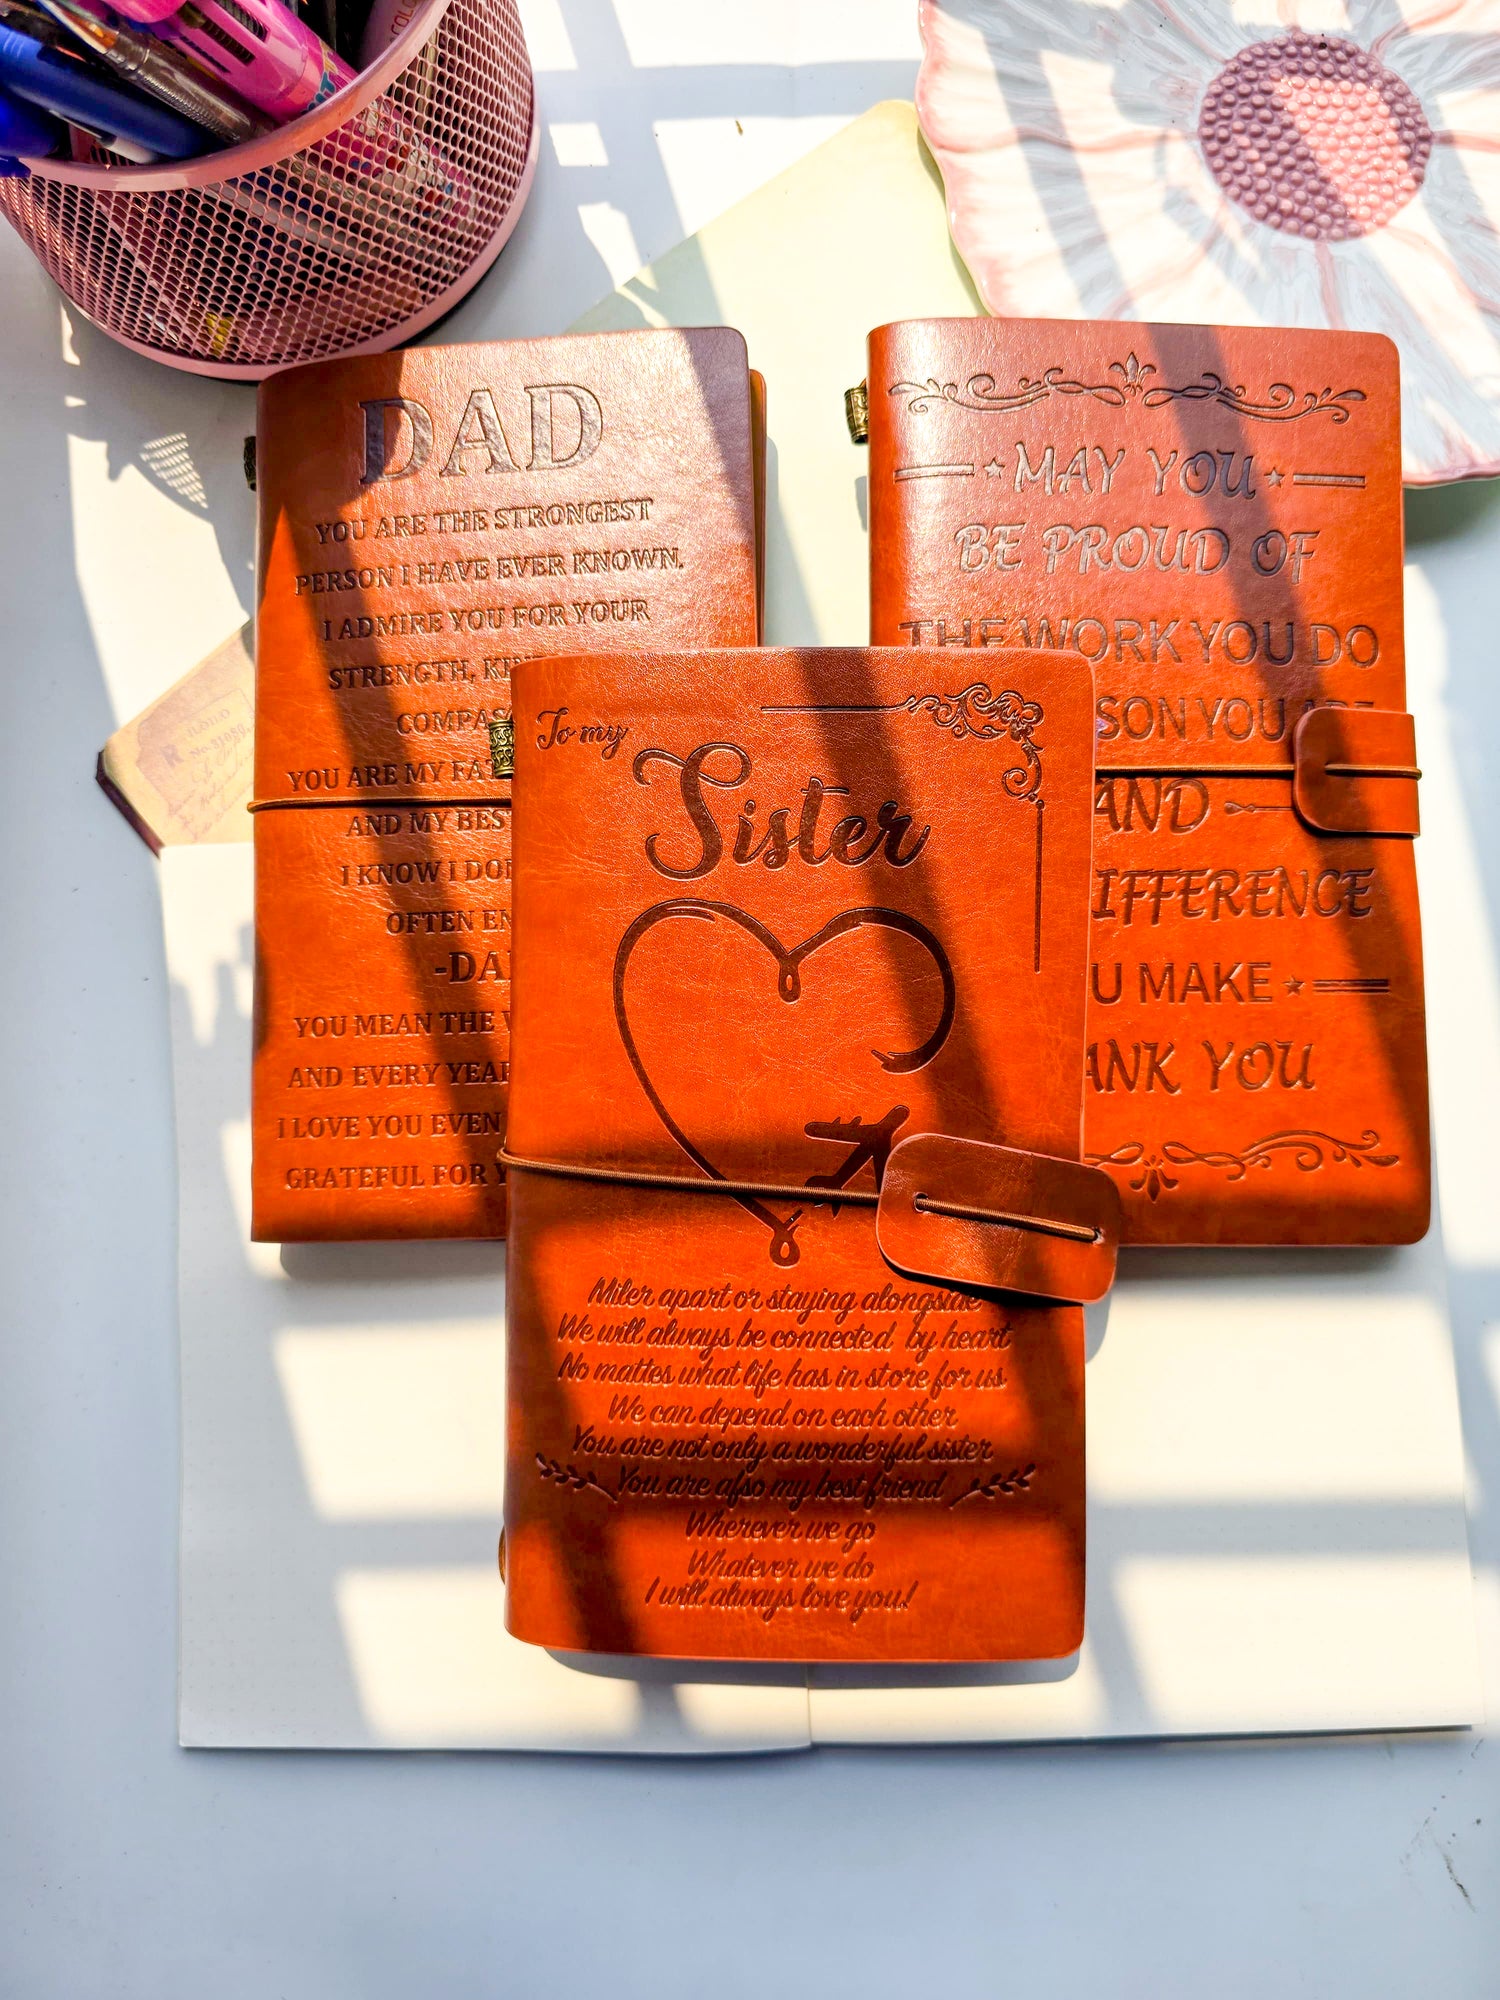 DAD
YOU ARE THE STRONGEST
PERSON I HAVE EVER KNOWN.
I ADMIRE YOU FOR YOUR
STRENGTH,
YOU ARE MY
AND MY
I KNOW I
OFTEN
YOU MEAN THE
AND EVERY
I LOVE YOU EVEN
GRATEFUL FOR
MAY YOU
BE PROUD OF
THE WORK YOU DO
YOU ARE
AND
U MAKE
YOU
To my
Sister
Miler apart or staying alongside
We will always be connected by heart
No mattes what life has in store for us
We can depend on each other
You are not only a wonderful sister
You are afso my best friend
Wherever we go
Whatever we do
I will always love you!
R
No.